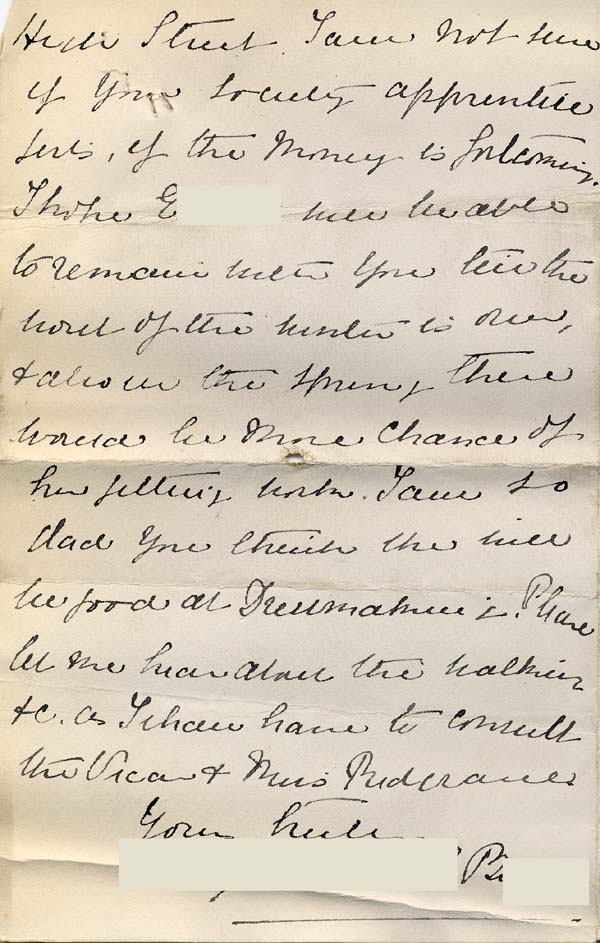 High Street. I am not sure
if your Society apprentice
girls, if the money is forthcoming.
I hope E will be able
to remain with you till the
worst of the winter is over,
& also in the spring there
would be more chance of
her getting work. I am so
glad you think she will
be good at Dressmaking. Please
let me hear about the walking
&c. as I shall have to consult
the Vicar & Miss Redgrave
Yours truly